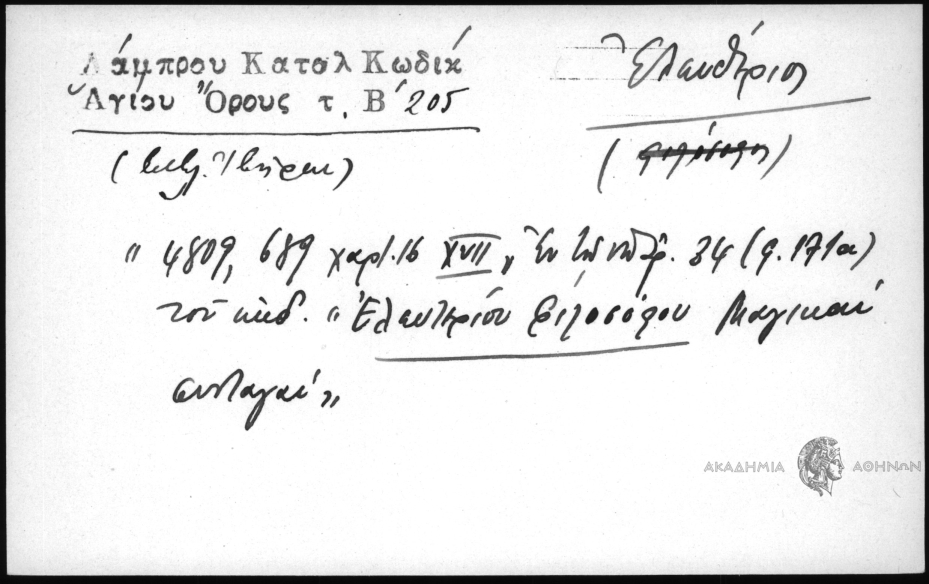 Λάμπρου Κατολ Κωδικ
Ἁγίου Ὄρους τ. Β΄ 205
Ἐλευθέριος
(βιβλ. Ἰβήρων)
(φιλόσοφος)
" 4809, 689 χαρτ. 16 XVII „ Ἐν τῷ ὑπ' ἀρ. 34 (φ. 171α)
τοῦ κώδ. "Ἐλευθερίου φιλοσόφου Μαγικαὶ
συνταγαί"
ΑΚΑΔΗΜΙΑ ΑΘΗΝΩΝ